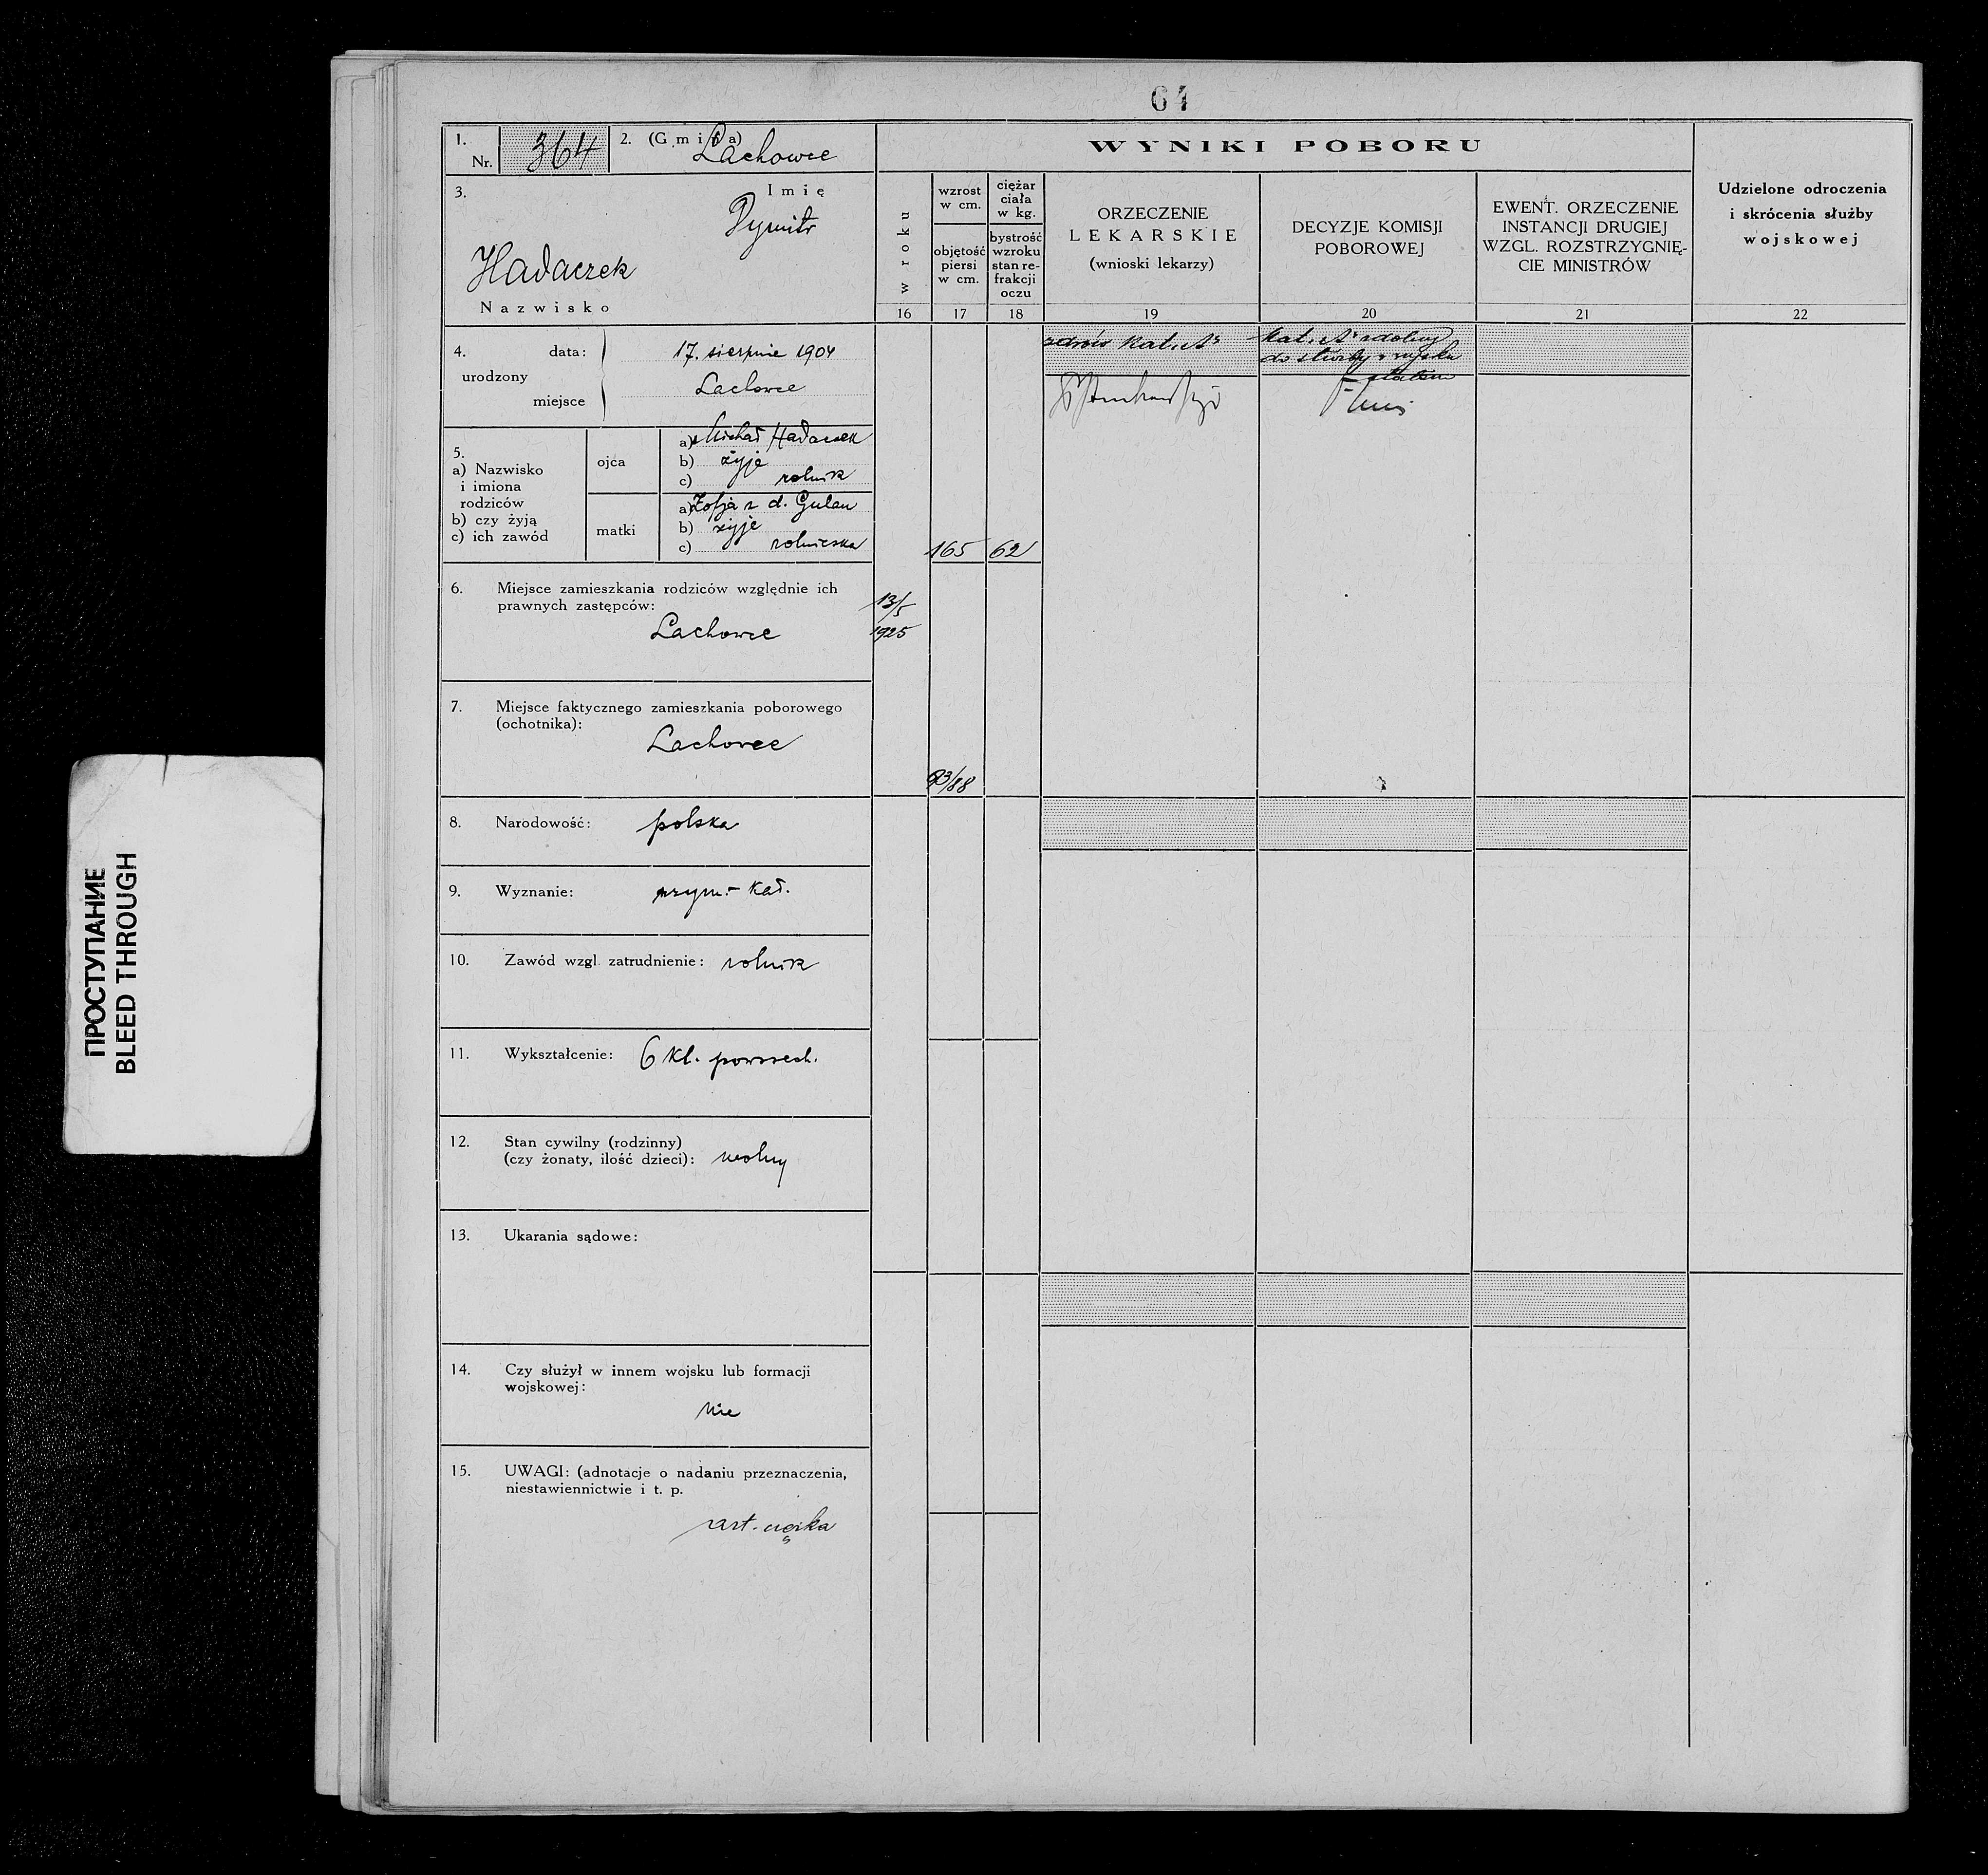 64
1.
Nr. 364
2. (Gmina) Lachowce
3. Imię
Dymitr
Hadaczek
Nazwisko
WYNIKI POBORU
w roku
wzrost
w cm.
objętość
piersi
w cm.
ciężar
ciała
w kg.
bystrość
wzroku
stan re-
frakcji
oczu
ORZECZENIE
LEKARSKIE
(wnioski lekarzy)
DECYZJE KOMISJI
POBOROWEJ
EWENT. ORZECZENIE
INSTANCJI DRUGIEJ
WZGL. ROZSTRZYGNIĘ-
CIE MINISTRÓW
Udzielone odroczenia
i skrócenia służby
wojskowej
16 17 18 19 20 21 22
4. data: 17. sierpnia 1904
urodzony
miejsce Lachowce
zdrów kat. "A"
kat. "A" zdolny
do służby wojsko
5.
a) Nazwisko
i imiona
rodziców
b) czy żyją
c) ich zawód
ojca
a) Michał Hadaczek
b) żyje
c) rolnik
matki
a) Zofja z d. Gulan
b) żyje
c) rolniczka
165 62
6. Miejsce zamieszkania rodziców względnie ich
prawnych zastępców:
Lachowce
13/5
1925
7. Miejsce faktycznego zamieszkania poborowego
(ochotnika):
Lachowce
93/88
8. Narodowość: polska
9. Wyznanie: rzym.-kat.
10. Zawód wzgl. zatrudnienie: rolnik
11. Wykształcenie: 6 kl. powszech.
12. Stan cywilny (rodzinny)
(czy żonaty, ilość dzieci): wolny
13. Ukarania sądowe:
14. Czy służył w innem wojsku lub formacji
wojskowej:
nie
15. UWAGI: (adnotacje o nadaniu przeznaczenia,
niestawiennictwie i t. p.
art. ciężka
ПРОСТУПАНИЕ
BLEED THROUGH